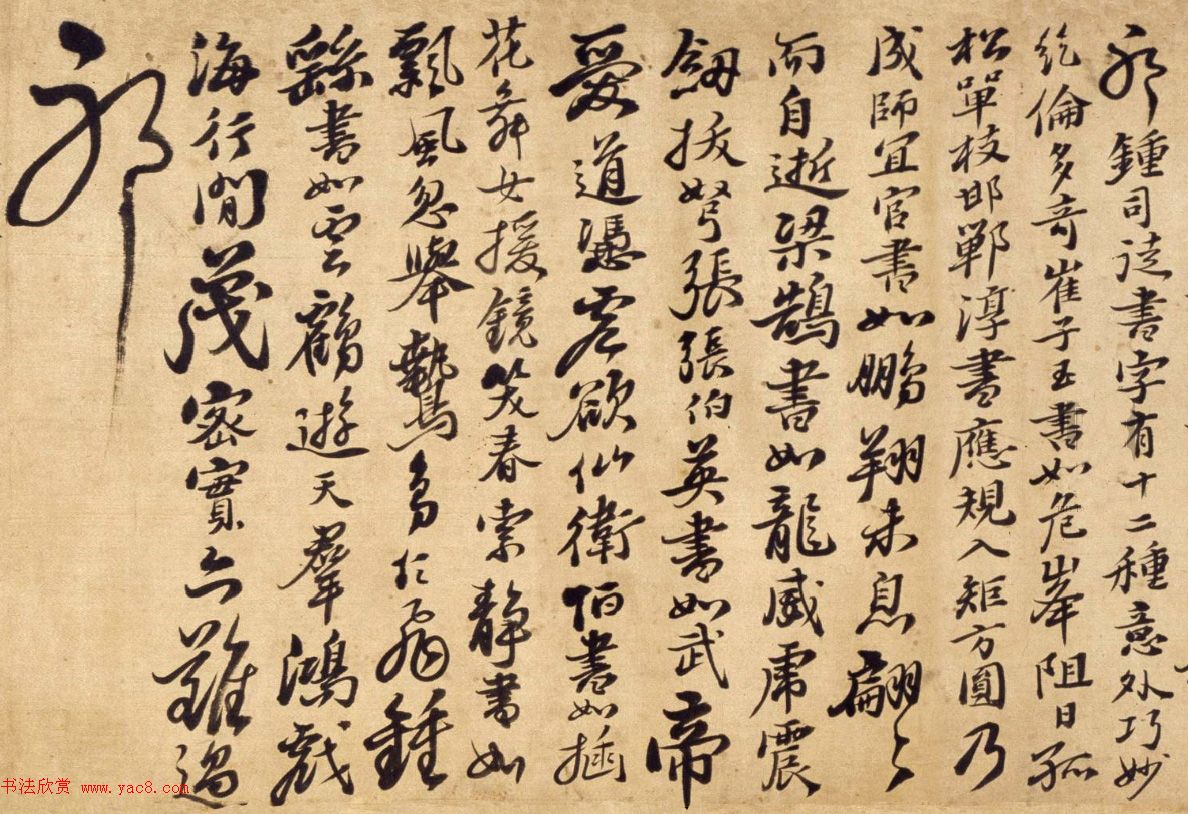 耶鍾司徒書字有十二種意外巧妙
絶倫多奇崔子玉書如危峯阻日孤
松單枝邯鄲淳書應規入矩方圓乃
成師宜官書如鵬翔未息翩〻
而自逝梁鵠書如龍威虎震
劒拔弩張張伯英書如武帝
愛道憑虛欲仙衛恒書如插
花舞女援鏡笑春索靜書如
飄風忽舉鷙鳥乍飛鍾
繇書如雲鶴遊天羣鴻戲
海行間茂密實亦難過
耶
书法欣赏 www.yac8.com